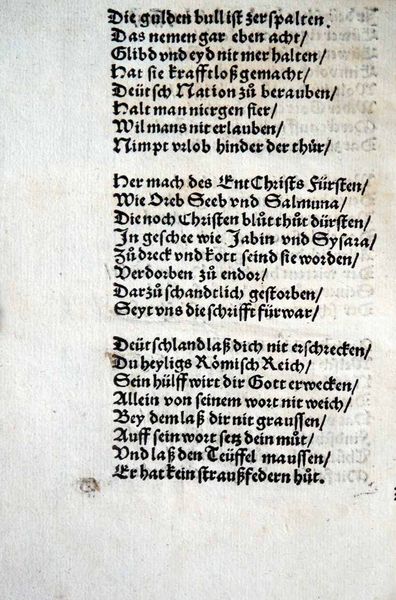 Die gulden bull ist zerspalten.
Das nemen gar eben acht/
Glibd vnd eyd nit mer halten/
Hat sie krafftloß gemacht/
Deütsch Nation zů berauben/
Halt man niergen sier/
Wil mans nit erlauben/
Nimpt vrlob hinder der thür/
Her mach des EntChrists Fürsten/
Wie Oreb Seeb vnd Salmuna/
Die noch Christen blůt thůt dürsten/
Jn geschee wie Jabin vnd Sysara/
Zů dreck vnd kott seind sie worden/
Verdorben zů endor/
Darzů schandtlich gestorben/
Seyt vns die schrifft fürwar/
Deütschland laß dich nit erschrecken/
Du heyligs Römisch Reich/
Sein hülff wirt dir Gott erwecken/
Allein von seinem wort nit weich/
Bey dem laß dir nit graussen/
Auff sein wort setz dein můt/
Vnd laß den Teüffel maussen/
Er hat kein straußfedern hůt.